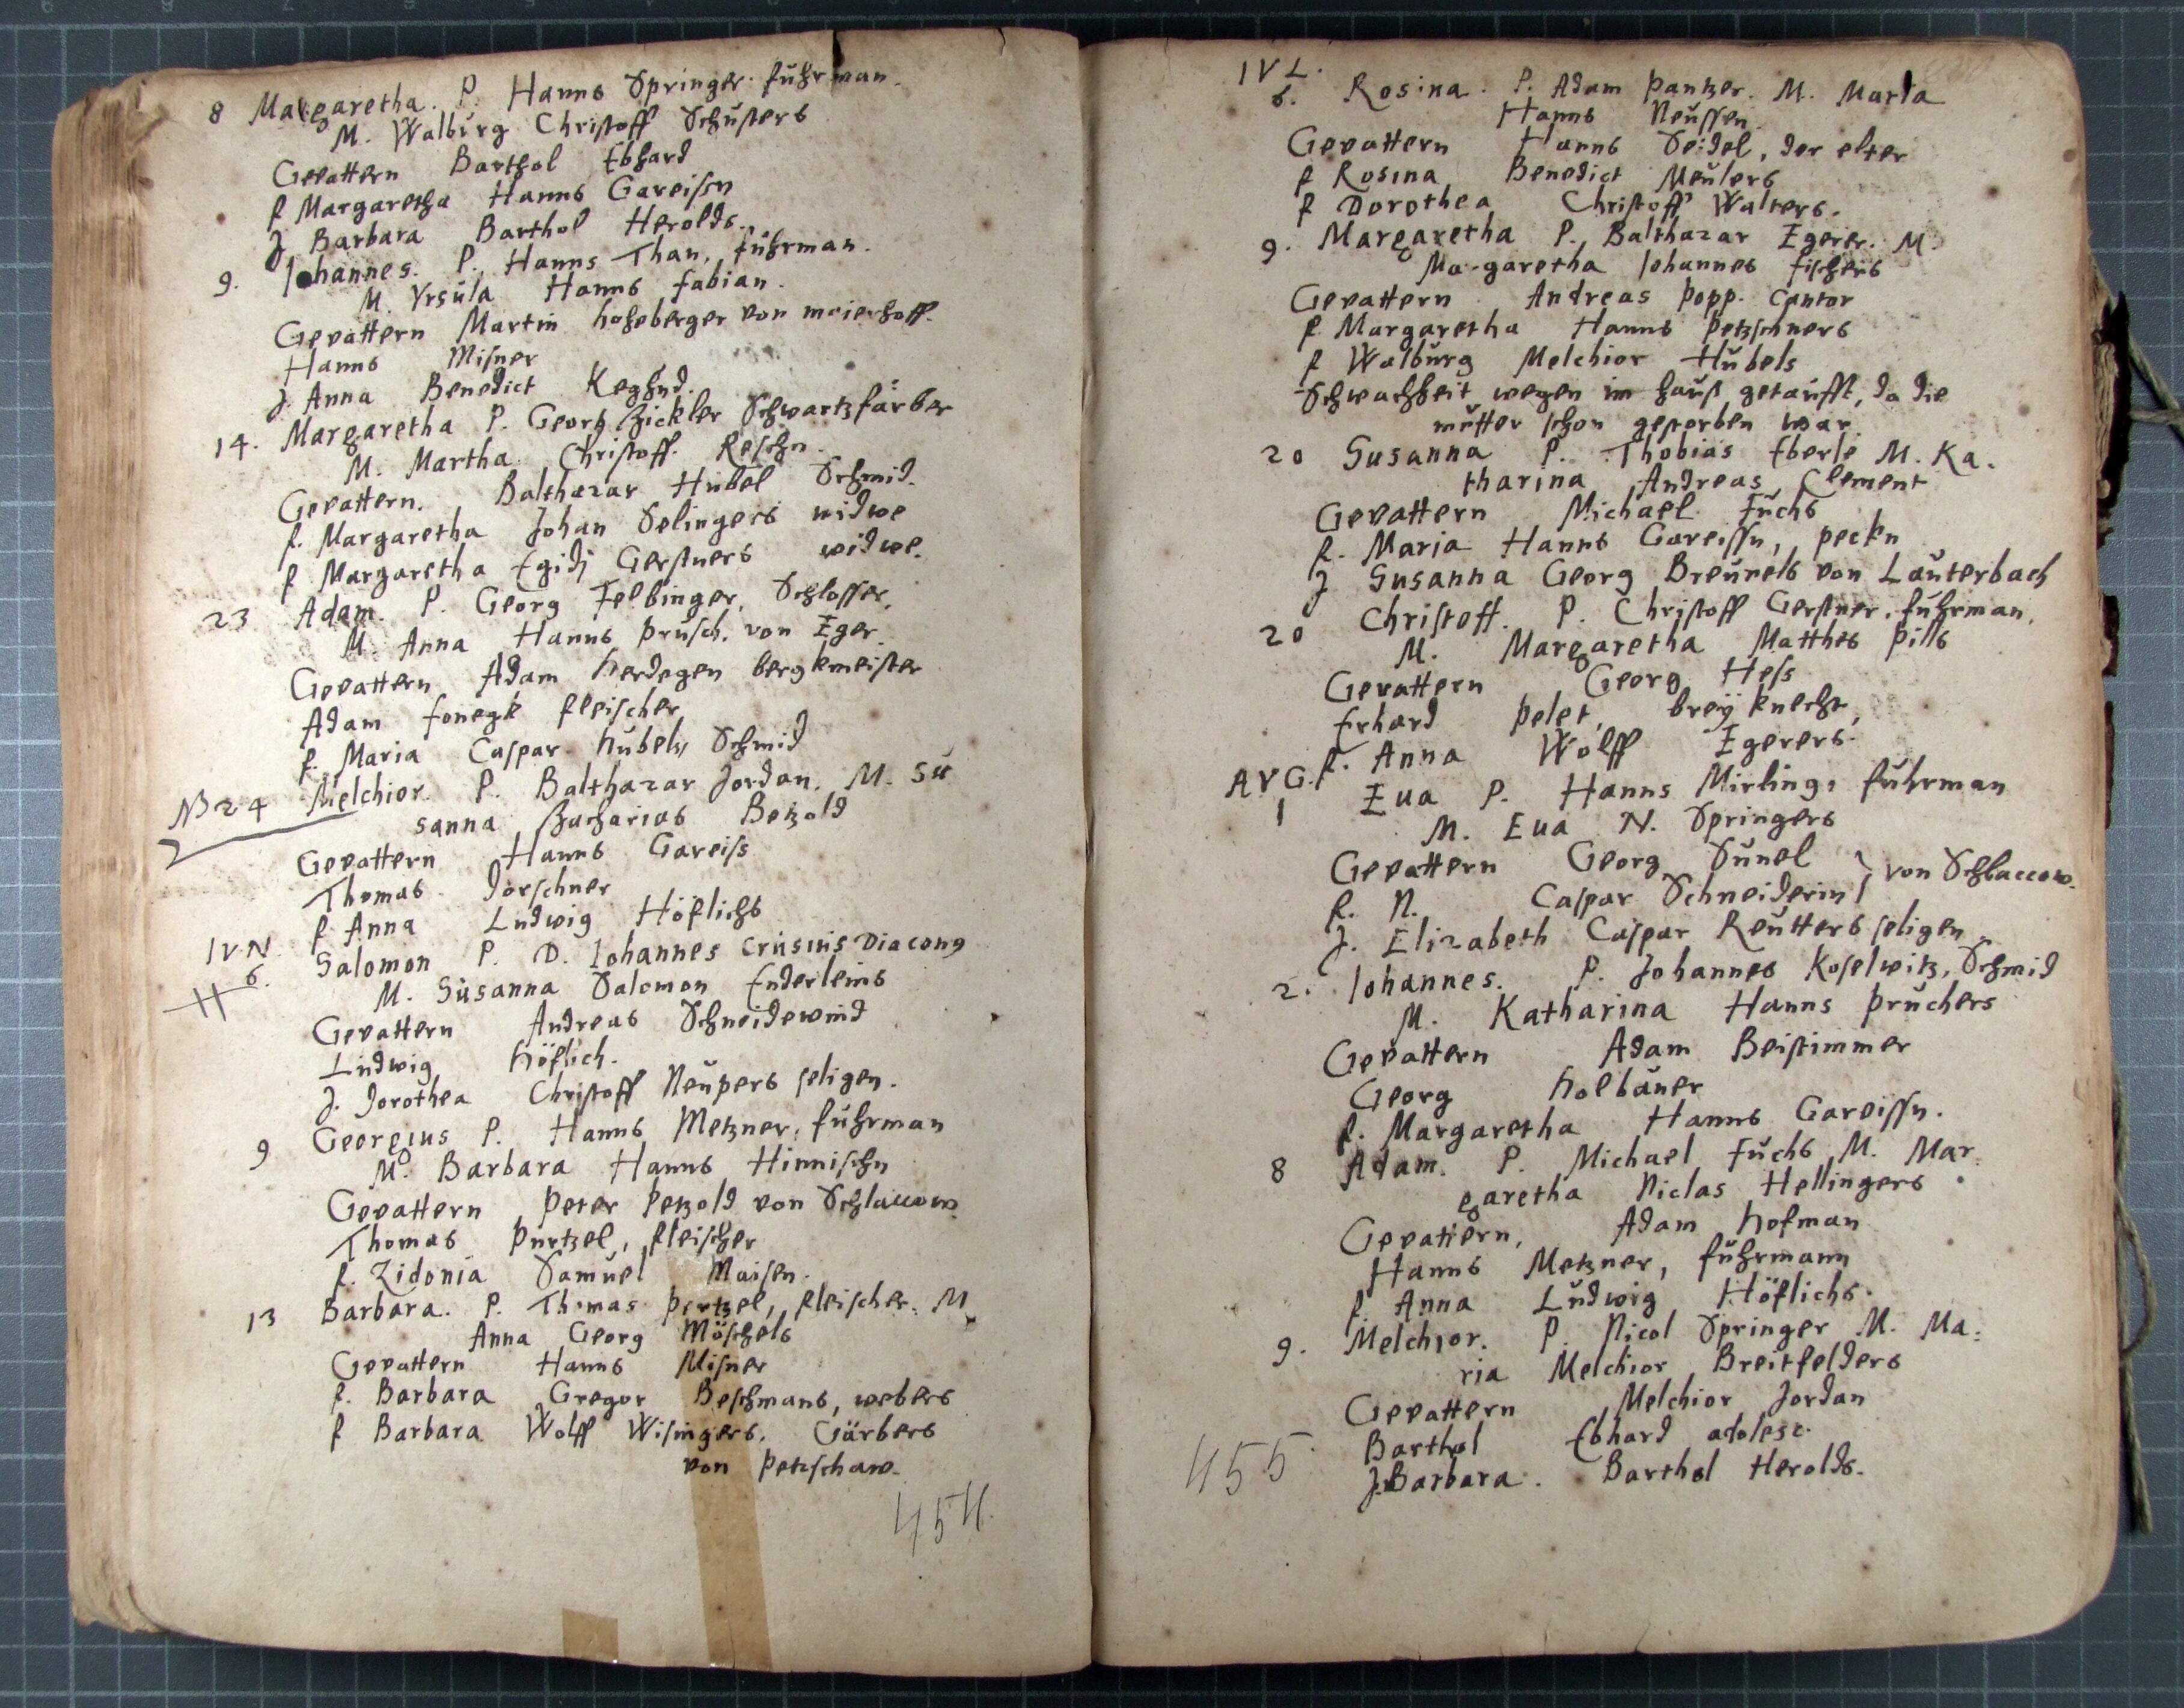 8 Margaretha. P. Hanns Springer. fuhrman.
M. Walburg Christoff Schusters
Gevattern Barthol Ebhard
f Margaretha Hanns Gareissn
J. Barbara Barthol Herolds.
9. Johannes. P. Hanns Than, fuhrman.
M. Vrsula Hanns fabian.
Gevattern Martin hoheberger von maierhoff.
Hanns Misner
J. Anna Benedict
14. Margaretha P. Georg Zickler Schwartzfärber
M. Martha Christoff. Reschn.
Gevattern. Balthazar Hübel Schmid.
f. Margaretha Johan Selingers widwe
f Margaretha Egidj Gerstners widwe.
23 Adam. P. Georg Felbinger, Schlosser,
M. Anna Hanns Prüsch. von Eger.
Gevattern Adam herdegen bergkmeister
Adam fonegk fleischer
f. Maria Caspar hübels, Schmid
NB 24 Melchior. P. Balthazar Jordan. M. Su
sanna Zacharias Betzold
Gevattern Hanns Gareiss
Thomas Dörschner
f Anna Ludwig Höflichs
IVN.
6. Salomon P. D. Johannes Crusius Diacon9
M. Susanna Salomon Enderleins
Gevattern Andreas Schneidewind
Ludwig höflich.
J. Dorothea Christoff Neupers seligen.
9 Georgius P. Hanns Metzner, fuhrman
M. Barbara Hanns Hinnischn
Gevattern Peter Petzold von Schlaccow.
Thomas Purtzel, fleischer
f. Zidonia Samuel Maisen.
13 Barbara. P. Thomas Purtzel, fleischer. M.
Anna Georg Möschels
Gevattern Hanns Misner
f. Barbara Gregor Beschmans, webers
f Barbara Wolff Wisingers. Gärbers
von Petzschaw.
454.
IVL.
6. Rosina. P. Adam Pantzer. M. Maria
Hanns Neussen.
Gevattern Hanns Seidel, der elter
f Rosina Benedict Meulers
f Dorothea Christoff Walters.
9. Margaretha P. Balthazar Egerer. M.
Margaretha Johannes fischers
Gevattern Andreas Popp. Cantor
f Margaretha Hanns Petzschners
f Walburg Melchior Hübels
Schwachheit wegen im hauß getaufft, da die
mutter schon gestorben war.
20 Susanna P. Thobias Eberle M. Ka.
tharina Andreas Clement
Gevattern Michael Fuchs
f. Maria Hanns Gareissn, peckn
J Susanna Georg Breunels von Lauterbach
20 Christoff. P. Christoff Gerstner. fuhrman.
M. Margaretha Matthes Pills
Gevattern Georg Hess
Erhard Pelet, breÿknecht,
f. Anna Wolff Egerers.
AVG.
1 Eua P. Hanns Mirling, fuhrman
M. Eua N. Springers
Gevattern Georg Sünel } von Schlaccow.
f. N. Caspar Schneiderin
J. Elizabeth Caspar Reutters seligen
2. Johannes. P. Johannes Koselwitz, Schmid
M. Katharina Hanns Pruchers
Gevattern Adam Beistimmer
Georg holbauer
f. Margaretha Hanns Gareissn.
8 Adam. P. Michael Fuchs M. Mar.
garetha Niclas Hellingers
Gevattern, Adam hofman
Hanns Metzner, fuhrmann
f. Anna Ludwig Höflichs.
9. Melchior. P. Nicol Springer M. Ma:
ria Melchior Breitfelders
Gevattern Melchior Jordan
Barthol Ebhard adolesc.
J. Barbara. Barthol Herolds.
455